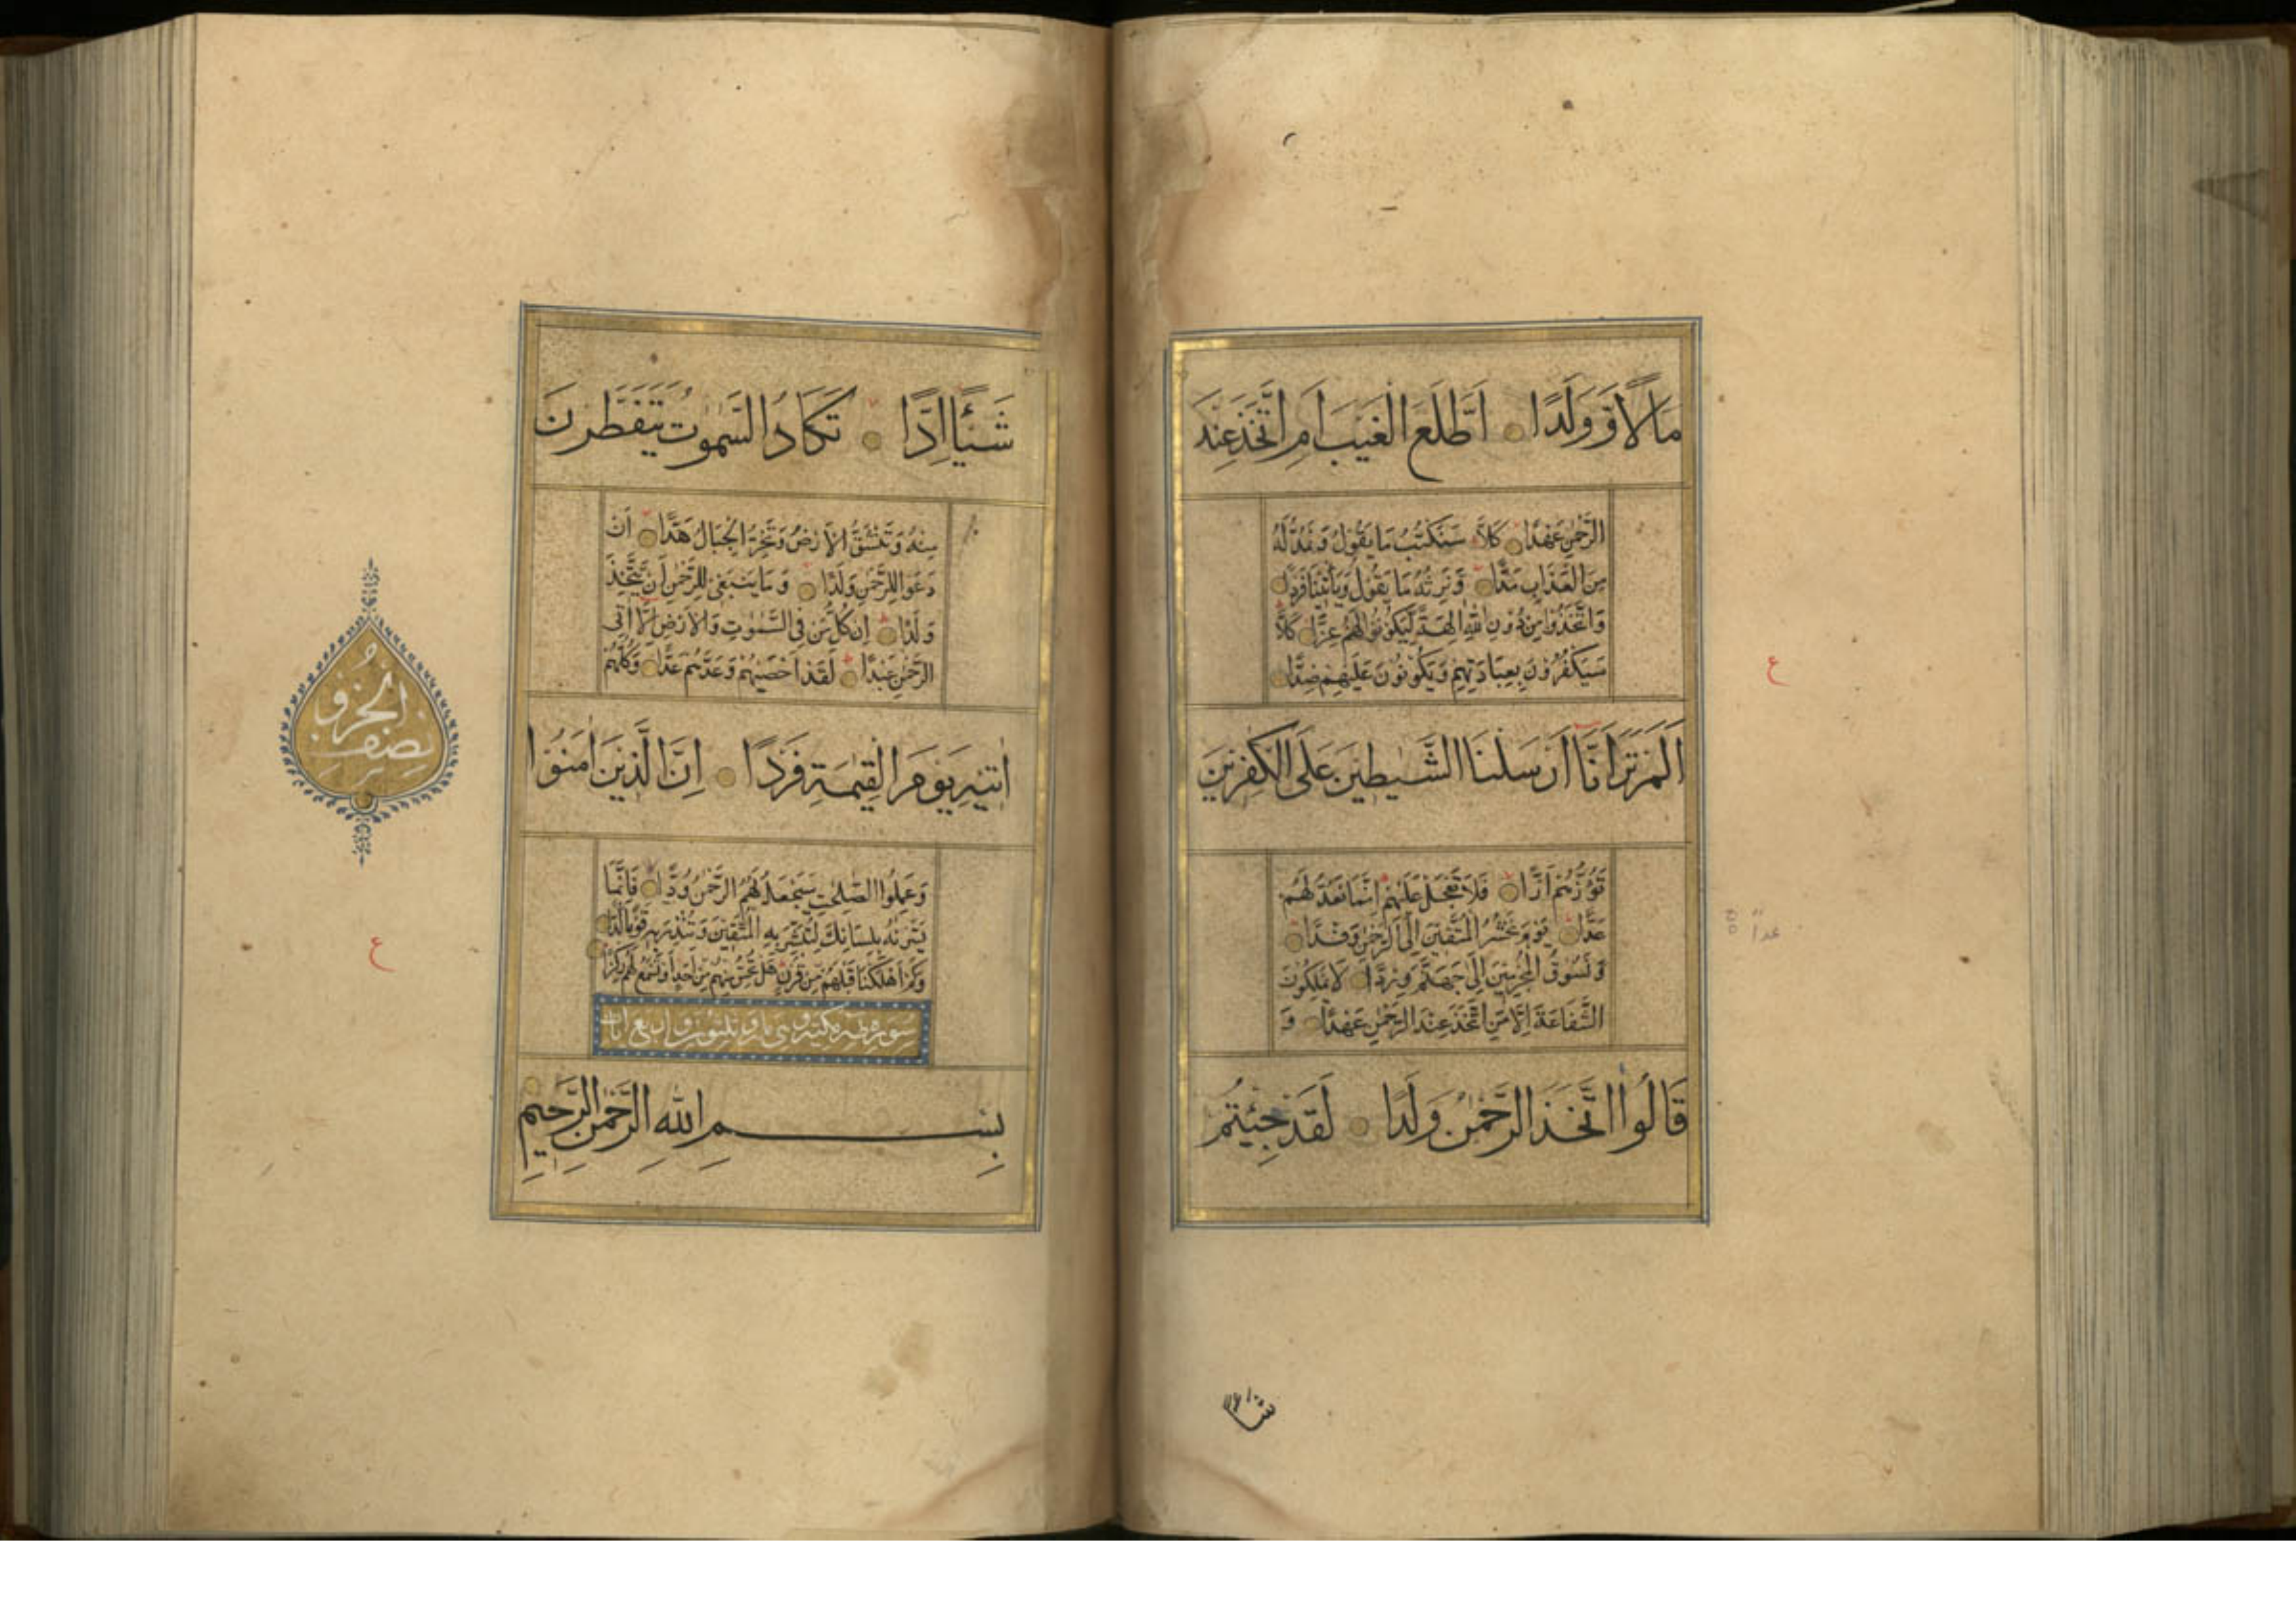 مَالًا وَّوَلَدًا اَطَّلَعَ الْغَيْبَ اَمِ اتَّخَذَ عِنْدَ
الرَّحْمٰنِ عَهْدًا كَلَّا سَنَكْتُبُ مَا يَقُوْلُ وَنَمُدُّ لَهٗ
مِنَ الْعَذَابِ مَدًّا وَّنَرِثُهٗ مَا يَقُوْلُ وَيَأْتِيْنَا فَرْدًا
وَاتَّخَذُوْا مِنْ دُوْنِ اللّٰهِ اٰلِهَةً لِّيَكُوْنُوْا لَهُمْ عِزًّا كَلَّا
سَيَكْفُرُوْنَ بِعِبَادَتِهِمْ وَيَكُوْنُوْنَ عَلَيْهِمْ ضِدًّا
اَلَمْ تَرَ اَنَّا اَرْسَلْنَا الشَّيٰطِيْنَ عَلَى الْكٰفِرِيْنَ
تَؤُزُّهُمْ اَزًّا فَلَا تَعْجَلْ عَلَيْهِمْ اِنَّمَا نَعُدُّ لَهُمْ
عَدًّا يَوْمَ نَحْشُرُ الْمُتَّقِيْنَ اِلَى الرَّحْمٰنِ وَفْدًا
وَّنَسُوْقُ الْمُجْرِمِيْنَ اِلٰى جَهَنَّمَ وِرْدًا لَا يَمْلِكُوْنَ
الشَّفَاعَةَ اِلَّا مَنِ اتَّخَذَ عِنْدَ الرَّحْمٰنِ عَهْدًا وَ
قَالُوا اتَّخَذَ الرَّحْمٰنُ وَلَدًا لَقَدْ جِئْتُمْ
ع
شيأ
شَيْئًا اِدًّا تَكَادُ السَّمٰوٰتُ يَتَفَطَّرْنَ
مِنْهُ وَتَنْشَقُّ الْاَرْضُ وَتَخِرُّ الْجِبَالُ هَدًّا اَنْ
دَعَوْا لِلرَّحْمٰنِ وَلَدًا وَمَا يَنْبَغِيْ لِلرَّحْمٰنِ اَنْ يَّتَّخِذَ
وَلَدًا اِنْ كُلُّ مَنْ فِي السَّمٰوٰتِ وَالْاَرْضِ اِلَّا اٰتِى
الرَّحْمٰنِ عَبْدًا لَقَدْ اَحْصٰيهُمْ وَعَدَّهُمْ عَدًّا وَكُلُّهُمْ
اٰتِيْهِ يَوْمَ الْقِيٰمَةِ فَرْدًا اِنَّ الَّذِيْنَ اٰمَنُوْا
وَعَمِلُوا الصّٰلِحٰتِ سَيَجْعَلُ لَهُمُ الرَّحْمٰنُ وُدًّا فَاِنَّمَا
يَسَّرْنٰهُ بِلِسَانِكَ لِتُبَشِّرَ بِهِ الْمُتَّقِيْنَ وَتُنْذِرَ بِهٖ قَوْمًا لُّدًّا
وَكَمْ اَهْلَكْنَا قَبْلَهُمْ مِّنْ قَرْنٍ هَلْ تُحِسُّ مِنْهُمْ مِّنْ اَحَدٍ اَوْ تَسْمَعُ لَهُمْ رِكْزًا
سورة طه مكية وهى مائة وثلثون واربع ايات
بِسْمِ اللّٰهِ الرَّحْمٰنِ الرَّحِيْمِ
نصف الحزب
ع